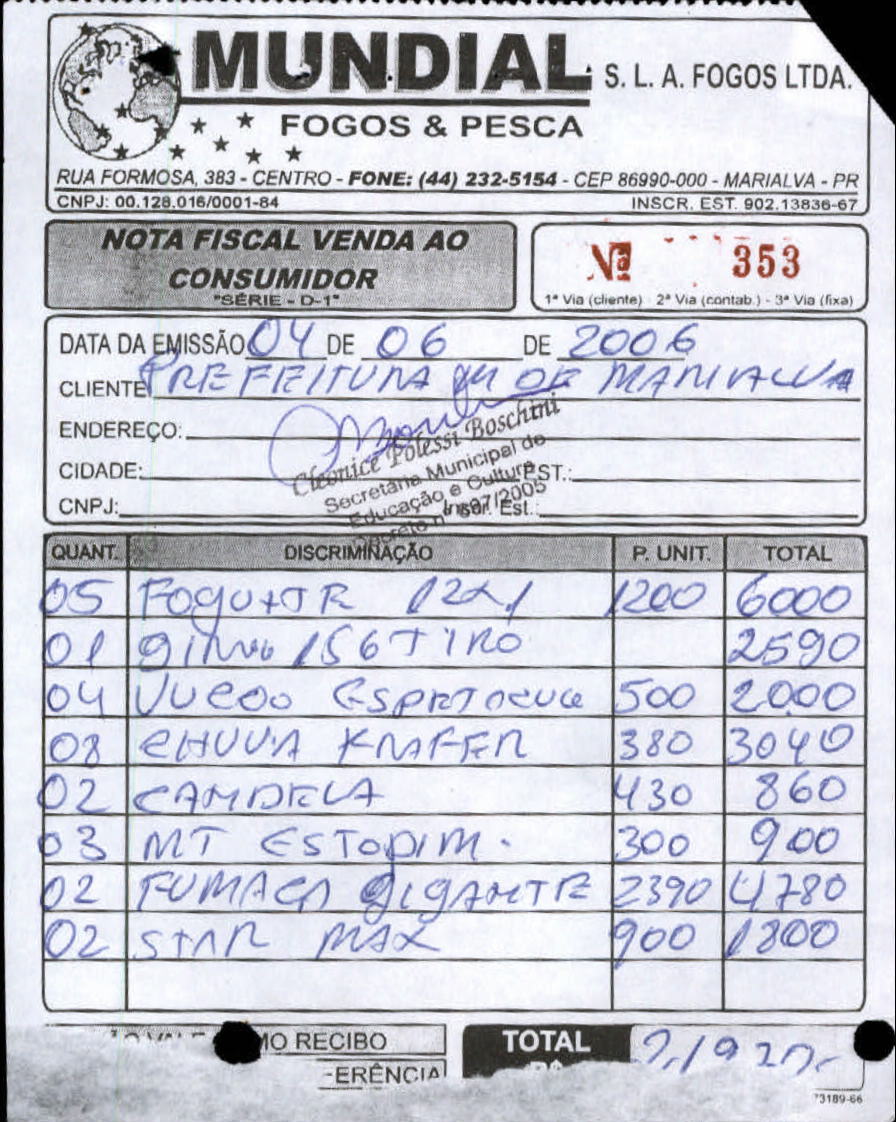 MUNDIAL S. L. A. FOGOS LTDA.
FOGOS & PESCA
RUA FORMOSA, 383 - CENTRO - FONE: (44) 232-5154 - CEP 86990-000 - MARIALVA - PR
CNPJ: 00.128.016/0001-84 INSCR. EST. 902.13836-67
NOTA FISCAL VENDA AO
CONSUMIDOR
"SÉRIE - D-1"
Nº 353
1ª Via (cliente) - 2ª Via (contab.) - 3ª Via (fixa)
DATA DA EMISSÃO 04 DE 06 DE 2006
CLIENTE PREFEITURA M DE MARIALVA
ENDEREÇO:
CIDADE: EST.:
CNPJ: Insc. Est.:
Cleonice Polessi Boschini
Secretária Municipal de
Educação e Cultura
Decreto nº 697/2005
QUANT. DISCRIMINAÇÃO P. UNIT. TOTAL
05 FOGUETE 12x1 1200 6000
01 156 TIRO 2590
04 500 2000
08 CHUVA 380 3040
02 CANDELA 430 860
03 MT ESTOPIM. 300 900
02 FUMAÇA GIGANTE 2390 4780
02 STAR MAX 900 1800
MO RECIBO TOTAL
ERÊNCIA
73189-66